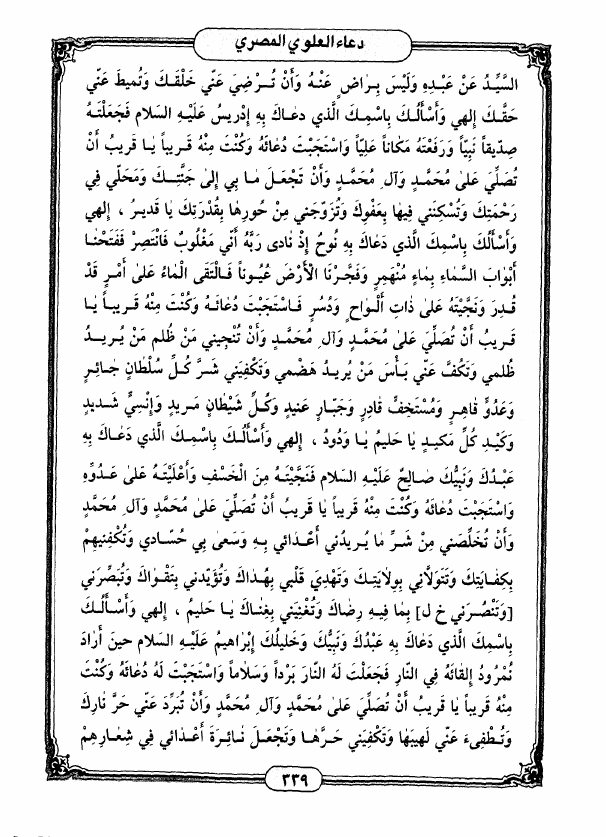 دعاء العلوي المصري
السَّيِّدُ عَنْ عَبْدِهِ وَلَيْسَ بِرَاضٍ عَنْهُ وَأَنْ تُرْضِيَ عَنِّي خَلْقَكَ وَتُمِيطَ عَنِّي
حَقَّكَ إِلهي وَأَسْأَلُكَ بِاسْمِكَ الَّذي دَعَاكَ بِهِ إِدْرِيسُ عَلَيْهِ السَّلام فَجَعَلْتَهُ
صِدِّيقاً نَبِيّاً وَرَفَعْتَهُ مَكَاناً عَلِيّاً وَاسْتَجَبْتَ دُعَائَهُ وَكُنْتَ مِنْهُ قَرِيباً يَا قَرِيبُ أَنْ
تُصَلِّيَ عَلىٰ مُحَمَّدٍ وَآلِ مُحَمَّدٍ وَأَنْ تَجْعَلَ مَآبِي إِلىٰ جَنَّتِكَ وَمَحَلّي فِي
رَحْمَتِكَ وَتُسْكِنَني فِيهَا بِعَفْوِكَ وَتُزَوِّجَني مِنْ حُورِهَا بِقُدْرَتِكَ يَا قَديرُ ، إِلهي
وَأَسْأَلُكَ بِاسْمِكَ الَّذي دَعَاكَ بِهِ نُوحٌ إِذْ نَادىٰ رَبَّهُ أَنّي مَغْلُوبٌ فَانْتَصِرْ فَفَتَحْنَا
أَبْوَابَ السَّمَاءِ بِمَاءٍ مُنْهَمِرٍ وَفَجَّرْنَا الْأَرْضَ عُيُوناً فَالْتَقَى الْمَاءُ عَلىٰ أَمْرٍ قَدْ
قُدِرَ وَنَجَّيْتَهُ عَلىٰ ذَاتِ أَلْوَاحٍ وَدُسُرٍ فَاسْتَجَبْتَ دُعَائَهُ وَكُنْتَ مِنْهُ قَرِيباً يَا
قَرِيبُ أَنْ تُصَلِّيَ عَلىٰ مُحَمَّدٍ وَآلِ مُحَمَّدٍ وَأَنْ تُنْجِيَني مَنْ ظُلم مَنْ يُرِيدُ
ظُلمي وَتَكُفَّ عَنّي بَأْسَ مَنْ يُرِيدُ هَضْمي وَتَكْفِيَني شَرَّ كُلِّ سُلْطَانٍ جَائِرٍ
وَعَدُوٍّ قَاهِرٍ وَمُسْتَخِفٍّ قَادِرٍ وَجَبَّارٍ عَنيدٍ وَكُلِّ شَيْطَانٍ مَريدٍ وَإِنْسِيٍّ شَديدٍ
وَكَيْدِ كُلِّ مَكيدٍ يَا حَليمُ يَا وَدُودُ ، إِلهي وَأَسْأَلُكَ بِاسْمِكَ الَّذي دَعَاكَ بِهِ
عَبْدُكَ وَنَبِيُّكَ صَالِحٌ عَلَيْهِ السلام فَنَجَّيْتَهُ مِنَ الْخَسْفِ وَأَعْلَيْتَهُ عَلىٰ عَدُوِّهِ
وَاسْتَجَبْتَ دُعَائَهُ وَكُنْتَ مِنْهُ قَرِيباً يَا قَرِيبُ أَنْ تُصَلِّيَ عَلىٰ مُحَمَّدٍ وَآلِ مُحَمَّدٍ
وَأَنْ تُخَلِّصَني مِنْ شَرِّ مَا يُرِيدُني أَعْدَائي بِهِ وَسَعىٰ بِي حُسَّادي وَتَكْفِيَنِيهِمْ
بِكِفَايَتِكَ وَتَتَوَلَّاني بِوِلَايَتِكَ وَتَهْدِيَ قَلْبي بِهُدَاكَ وَتُؤَيِّدَني بِتَقْوَاكَ وَتُبَصِّرَني
[وَتَنْصُرَني خ ل] بِمَا فِيهِ رِضَاكَ وَتُغْنِيَني بِغِنَاكَ يَا حَليمُ ، إِلهي وَأَسْأَلُكَ
بِاسْمِكَ الَّذي دَعَاكَ بِهِ عَبْدُكَ وَنَبِيُّكَ وَخَليلُكَ إِبْرَاهيمُ عَلَيْهِ السلام حينَ أَرَادَ
نُمْرُودُ إِلْقَائَهُ فِي النَّارِ فَجَعَلْتَ لَهُ النَّارَ بَرْداً وَسَلَاماً وَاسْتَجَبْتَ لَهُ دُعَائَهُ وَكُنْتَ
مِنْهُ قَرِيباً يَا قَرِيبُ أَنْ تُصَلِّيَ عَلىٰ مُحَمَّدٍ وَآلِ مُحَمَّدٍ وَأَنْ تُبَرِّدَ عَنّي حَرَّ نَارِكَ
وَتُطْفِىءَ عَنّي لَهِيبَهَا وَتَكْفِيَني حَرَّهَا وَتَجْعَلَ نَائِرَةَ أَعْدَائي في شِعَارِهِمْ
٣٣٩